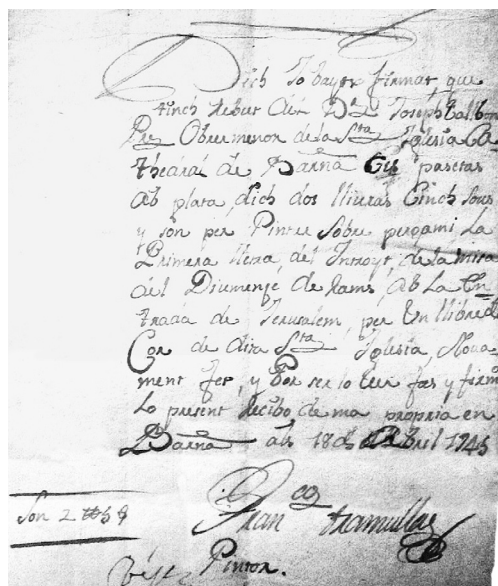 Dich Jo bayx firmat que
tinch rebut del Dr Joseph
Pre Obrer menor de la Sta Iglesia Ca
thedral de Barna Sis pasetas
ab plata, dich dos lliuras Cinch sous
y son per Pintar Sobre pergami La
Primera lletra, del Introyt, de la missa
del Diumenje de Rams, ab La En
trada de Jerusalem, per un llibre de
Cor de dita Sta Iglesia, Noua
ment fet, y Per ser lo ver fas y firm
Lo present recibo de ma propria en
Barna als 18 de Abril 1745
Son 2 ℔ 5 ß
Franco tramullas
Pintor.